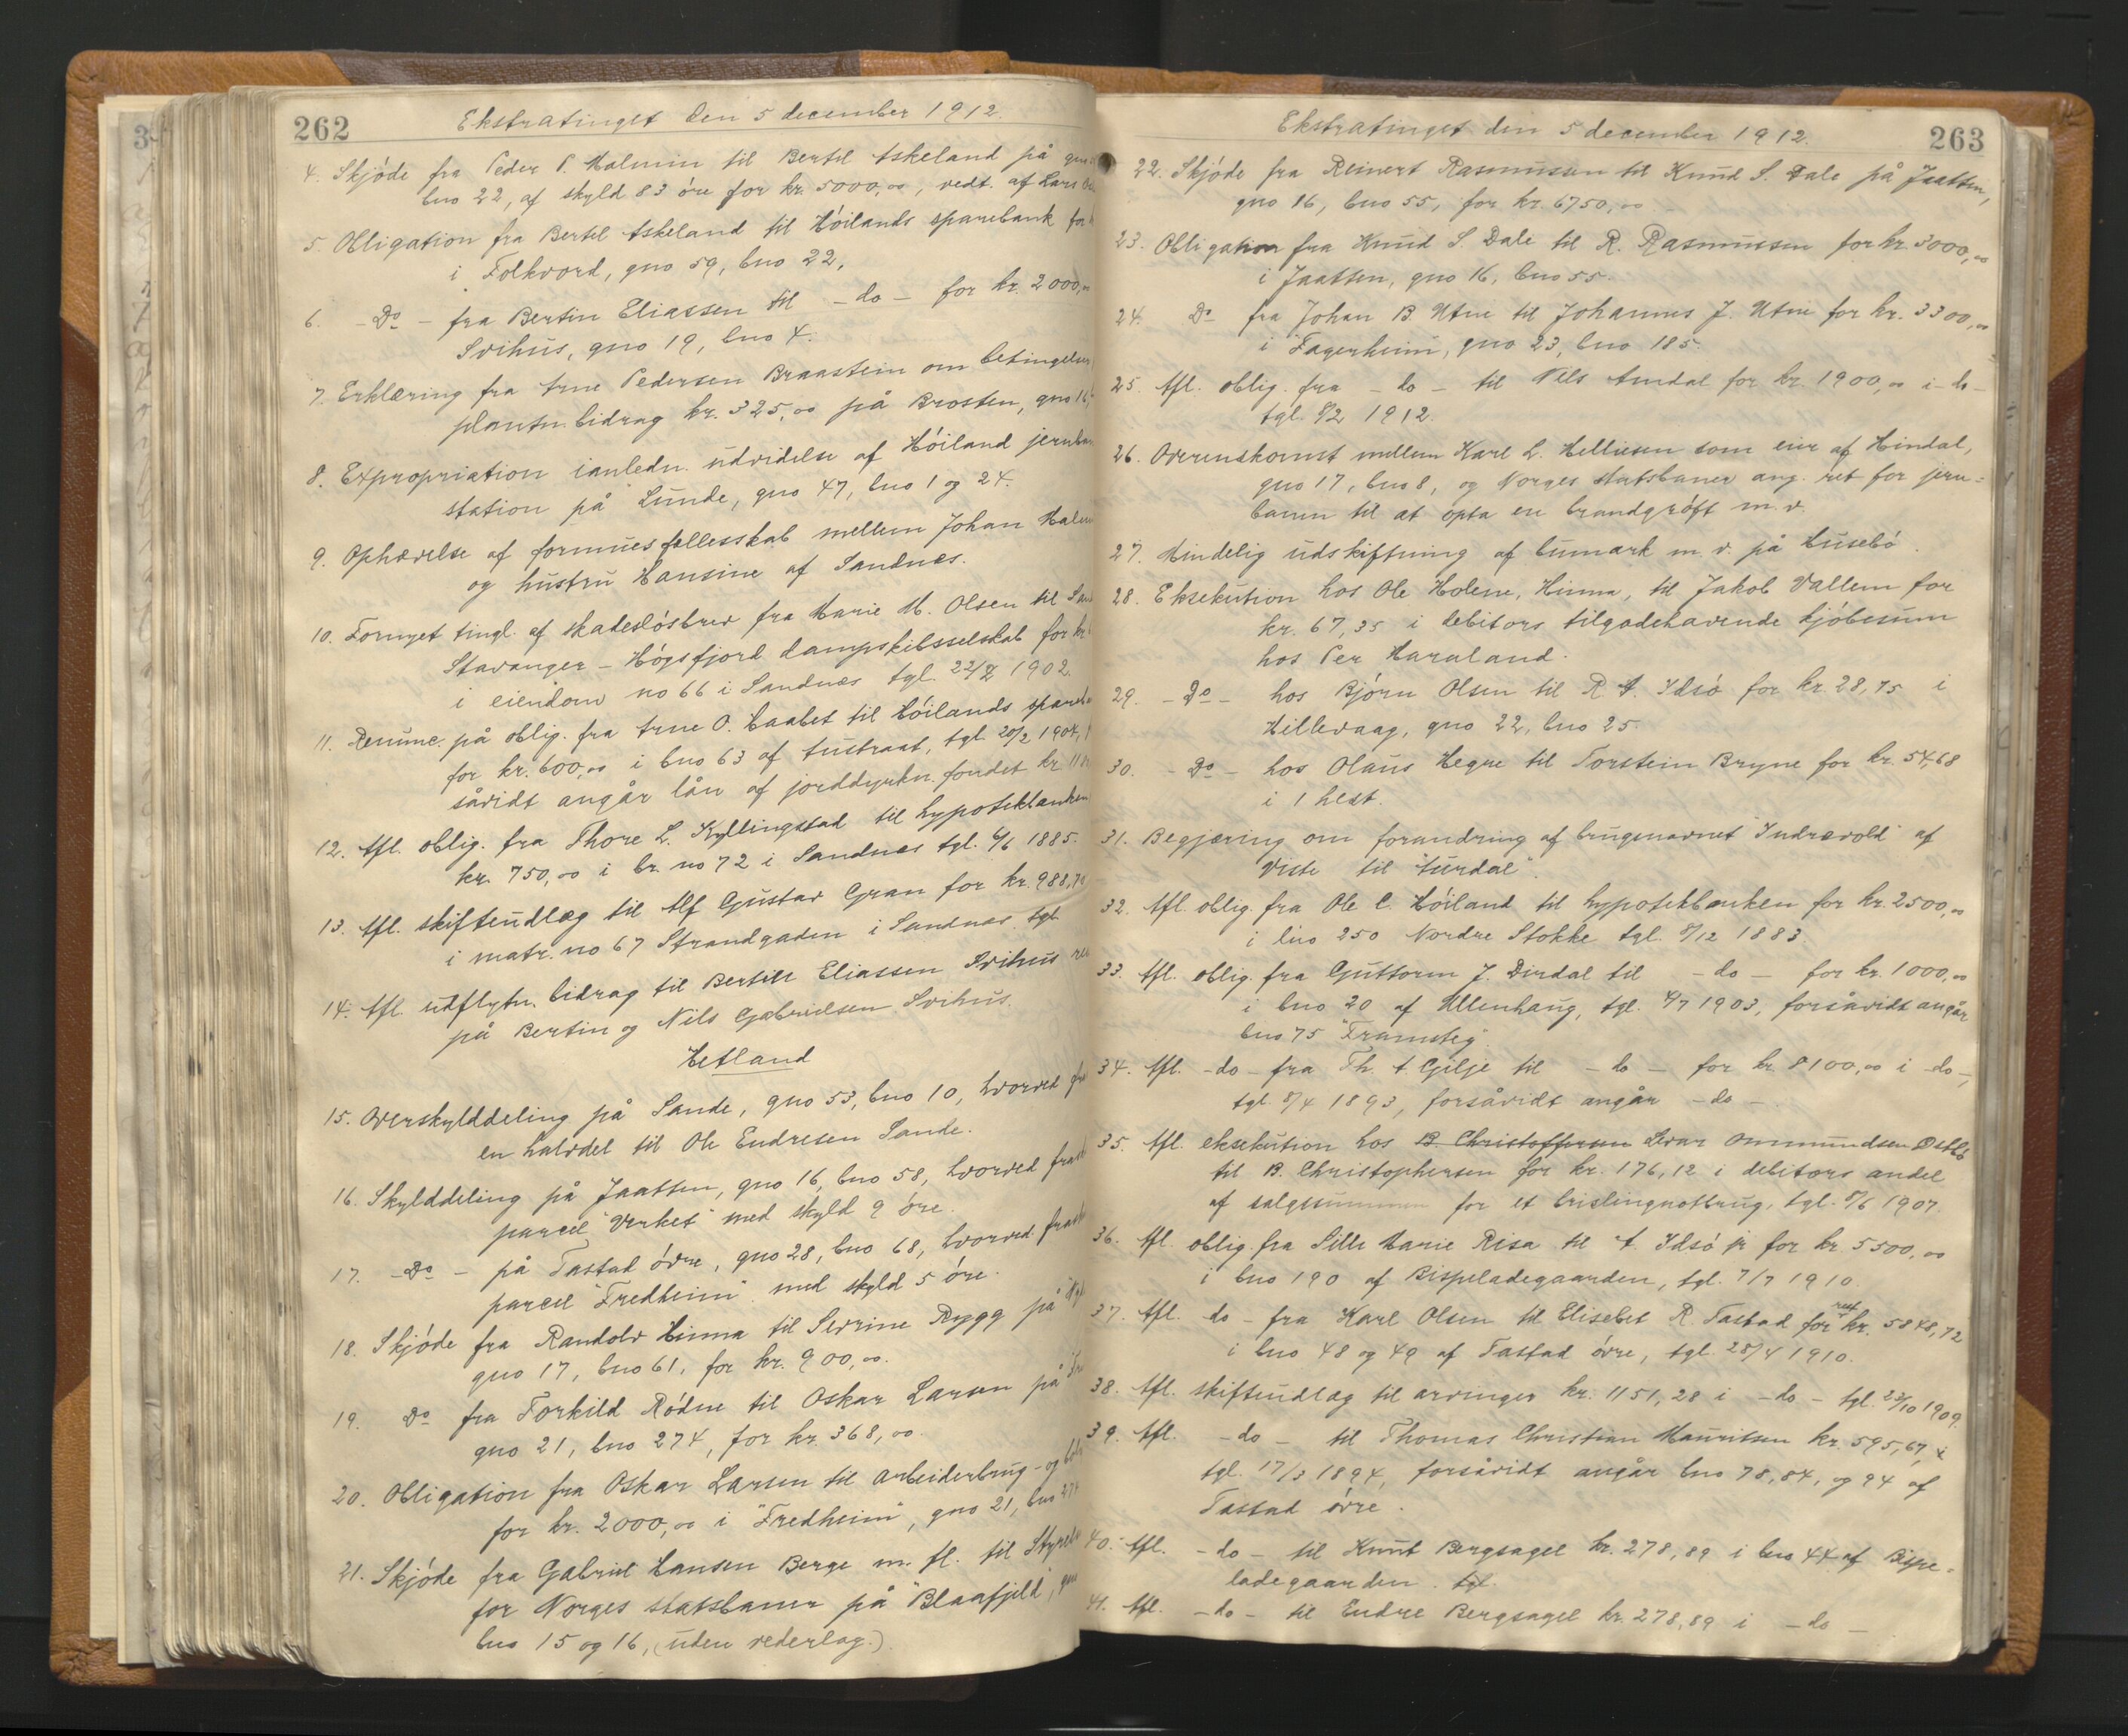 262
Ekstratinget den 5 december 1912.
4. Skjöde fra Peder P. Malmin til Bertel Askeland på gno
bno 22, af skyld 83 öre for kr. 5000,00, vedt. af Lars
5. Obligation fra Bertel Askeland til Höilands sparebank for
i Folkvord, gno 59, bno 22,
6. - Do - fra Bertin Eliassen til - do - for kr. 2000,00
Svihus, gno 19, bno 4.
7. Erklæring fra Arne Pedersen Braastein om betingelser
plantn. bidrag kr. 325,00 på Brosten, gno 16,
8. Expropriation ianledn. udvidelse af Höiland jernban
station på Lunde, gno 47, bno 1 og 24.
9. Ophævelse af formuesfællesskab mellem Johan
og hustru Hansine af Sandnes.
10. Fornyet tingl. af skadeslösbrev fra Marie M. Olsen til
Stavanger - Högsfjord dampskibsselskab for kr.
i eiendom no 66 i Sandnæs tgl. 22/2 1902.
11. Renunc. på oblig. fra Arne O. Haabet til Höilands spareb
for kr. 600,00 i bno 63 af Austraat, tgl. 20/2 1904,
såvidt angår lån af jorddyrkn. fondet kr.
12. Afl. oblig. fra Thore L. Kyllingstad til hypotekbanken
kr. 750,00 i br. no 72 i Sandnæs tgl. 6/6 1885.
13. Afl. skifteudlæg til Alf Gustav Gran for kr. 988,70
i matr. no 67 Strandgaden i Sandnæs tgl.
14. Afl. udflytn. bidrag til Bertill Eliassen Svihus
på Bertin og Nils Gabrielsen Svihus.
Hetland
15. Overskylddeling på Sande, gno 53, bno 10, hvorved
en halvdel til Ole Endresen Sande.
16. Skylddeling på Jaatten, gno 16, bno 58, hvorved
parcel "Verket" med skyld 9 öre.
17. - Do - på Tastad övre, gno 28, bno 68, hvorved
parcel "Fredheim" med skyld 5 öre.
18. Skjöde fra Randolv Hinna til Serine Rygg på
gno 17, bno 61, for kr. 900,00.
19. Do fra Torkild Rödne til Oskar Larsen på
gno 21, bno 274, for kr. 368,00.
20. Obligation fra Oskar Larsen til arbeiderbrug- og
for kr. 2000,00 i "Fredheim", gno 21, bno 274
21. Skjöde fra Gabriel Hansen Berge m. fl. til
for Norges statsbaner på "Blaafjeld",
bno 15 og 16, (uden vederlag.)
263
Ekstratinget den 5 december 1912.
22. Skjöde fra Reinert Rasmussen til Knud S. Dale på Jaatten,
gno 16, bno 55, for kr. 6750,00
23. Obligation fra Knud S. Dale til R. Rasmussen for kr. 3000,00
i Jaatten, gno 16, bno 55.
24. Do fra Johan B. Utne til Johannes J. Utne for kr. 3300,00
i "Fagerheim", gno 23, bno 185.
25. Afl. oblig. fra - do - til Nils Amdal for kr. 1900,00 i - do -
tgl. 8/2 1912.
26. Overenskomst mellem Karl L. Helliesen som eier af Hindal,
gno 17, bno 8, og Norges statsbaner ang. ret for jern-
banen til at opta en brandgröft m. v.
27. Mindelig udskiftning af bumark m. v. på Husebö.
28. Eksekution hos Ole Holene, Hinna, til Jakob Vallem for
kr. 67,35 i debitors tilgodehavende kjöbesum
hos Per Haraland.
29. - Do - hos Björn Olsen til R A. Idsö for kr. 28,75 i
Hillevaag, gno 22, bno 25.
30. - Do - hos Olaus Hegre til Torstein Bryne for kr. 54,68
i 1 hest.
31. Begjæring om forandring af brugsnavnet "Indrevold" af
Viste til "Aurdal".
32. Afl. oblig. fra Ole C. Höiland til hypotekbanken for kr. 2500,00
i bno 250 Nordre Stokke tgl. 8/12 1883.
33. Afl. oblig. fra Guttorm J. Dirdal til - do - for kr. 1000,00
i bno 20 af Ullenhaug, tgl. 4/7 1903, forsåvidt angår
bno 75 "Framsteg".
34. Afl. - do - fra Th. A. Gilje til - do - for kr. 8100,00 i - do -,
tgl. 8/4 1893, forsåvidt angår - do -
35. Afl. eksekution hos B. Christoffersen Sevar Ommundsen Østbö
til B. Christophersen for kr. 176,12 i debitors andel
af salgssummen for et brislingnotbrug, tgl. 8/6 1907.
36. Afl. oblig. fra Sille Marie Risa til A. Idsö jr for kr. 5500,00
i bno 190 af Bispeladegaarden, tgl. 7/7 1910.
37. Afl. do - fra Karl Olsen til Elisebet R. Tastad for rest kr. 5848,72
i bno 48 og 49 af Tastad övre, tgl. 28/4 1910.
38. Afl. skifteudlæg til arvinger kr. 1151,28 i - do - tgl. 23/10 1909.
39. Afl. - do - til Thomas Christian Mauritsen kr. 595,67, i
tgl. 17/3 1894, forsåvidt angår bno 78, 84, og 94 af
Tastad övre.
40. Afl. - do - til Knut Bergsagel kr. 278,89 i bno 44 af Bispe-
ladegaarden. tgl.
41. Afl. - do - til Endre Bergsagel kr. 278,89 i - do -